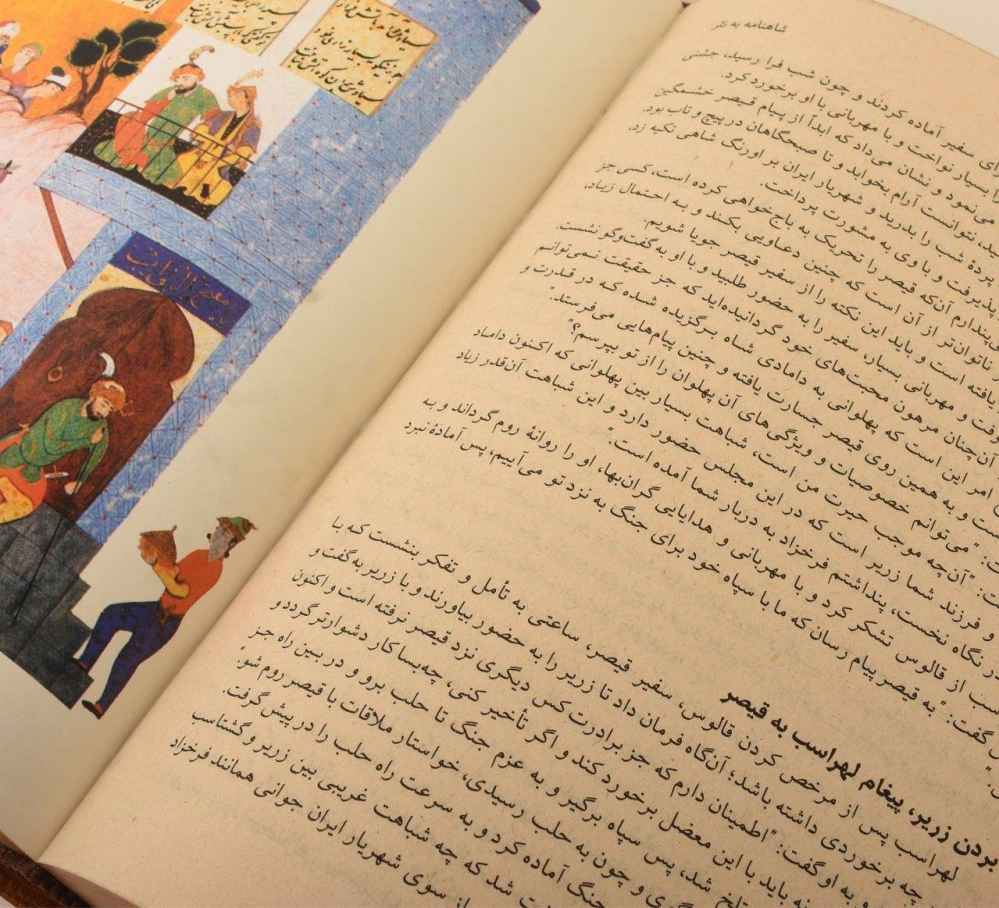 شاهنامه به نثر
ای سفیر آماده کردند و چون شب فرا رسید، جشنی
ا بسیار نواخت و با مهربانی با او برخورد کرد.
می‌نمود و نشان می‌داد که ابدأ از پیام قیصر خشمگین
ید، نتوانست آرام بخوابد و تا صبحگاهان در پیچ و تاب بود.
پردهٔ شب را بدرید و شهریار ایران بر اورنگ شاهی تکیه زد.
پذیرفت و با وی به مشورت پرداخت.
ی‌پندارم آن‌که قیصر را تحریک به باج‌خواهی کرده است، کسی جز
ناتوان‌تر از آن است که چنین دعاویی بکند و به احتمال زیاد،
یافته است و باید این نکته را از سفیر قیصر جویا شویم.
فت و مهربانی بسیار، سفیر را به حضور طلبید و با او به گفت‌وگو نشست.
آن‌چنان مرهون محبت‌های خود گردانیده‌اید که جز حقیقت نمی‌توانم
امر این است که پهلوانی به دامادی شاه برگزیده شده که در قدرت و
ت و به همین روی قیصر جسارت یافته و چنین پیام‌هایی می‌فرستد."
ت: "می‌توانم خصوصیات و ویژگی‌های آن پهلوان را از تو بپرسم؟"
"آن‌چه موجب حیرت من است، شباهت بسیار بین پهلوانی که اکنون داماد
و فرزند شما زریر است که در این مجلس حضور دارد و این شباهت آن‌قدر زیاد
ر نگاه نخست، پنداشتم فرخزاد به دربار شما آمده است."
سب از قالوس تشکر کرد و با مهربانی و هدایایی گران‌بها، او را روانهٔ روم گرداند و به
گفت: "به قیصر پیام رسان که ما با سپاه خود برای جنگ به نزد تو می‌آییم، پس آماده نبرد
بردن زریر، پیغام لهراسب به قیصر
لهراسب پس از مرخص کردن قالوس، سفیر قیصر، ساعتی به تأمل و تفکر بنشست که با
چه برخوردی داشته باشد؛ آن‌گاه فرمان داد تا زریر را به حضور بیاورند و با زریر به گفت و
و به او گفت: "اطمینان دارم که جز برادرت کس دیگری نزد قیصر نرفته است و اکنون
نه باید با این معضل برخورد کند و اگر تأخیر کنی، چه‌بسا کار دشوارتر گردد و
لخ شد، پس سپاه برگیر و به عزم جنگ تا حلب برو و در بین راه جز
گری و چون به حلب رسیدی، خواستار ملاقات با قیصر روم شو."
جنگ آماده کرد و به سرعت راه حلب را در پیش گرفت.
ت شد که چه شباهت غریبی بین زریر و گشتاسب
از سوی شهریار ایران جوانی همانند فرخزاد